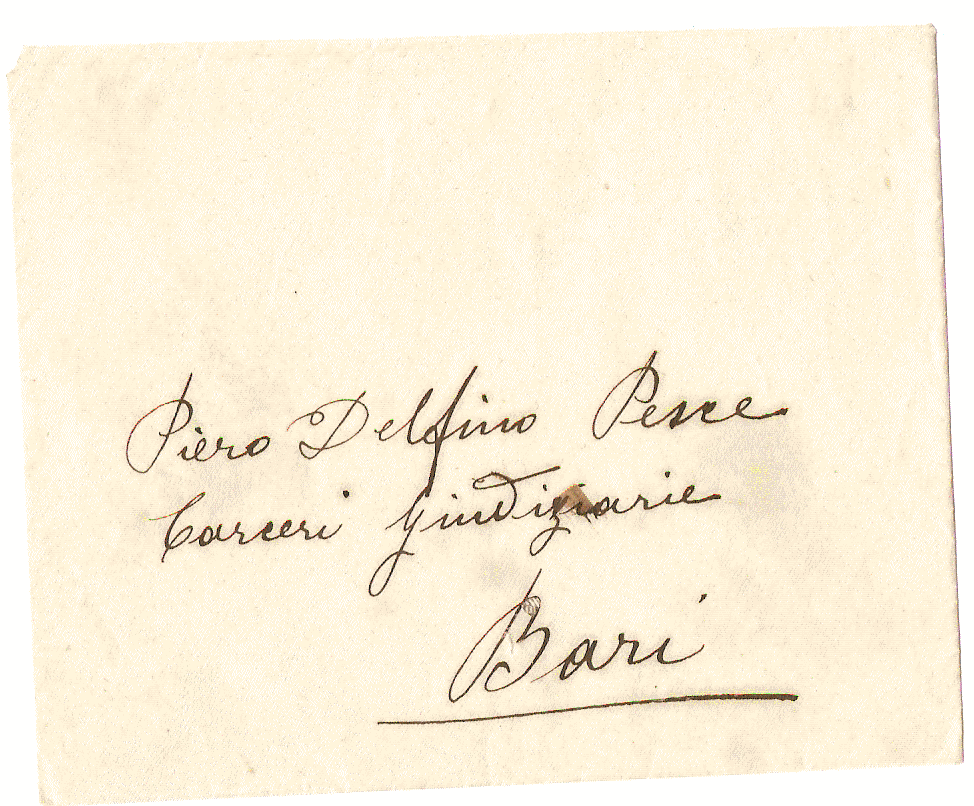 Piero Delfino Pesce
Carceri giudiziarie
Bari